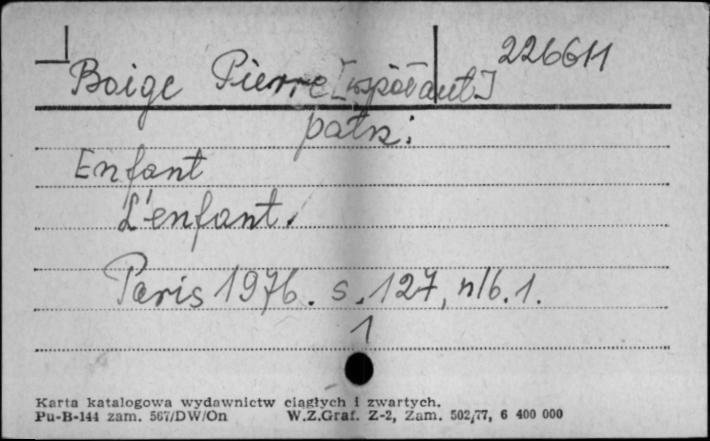 226611
Boige Pierre [współaut.]
patrz:
Enfant
L'enfant.
Paris 1976. s. 127, nlb. 1.
1
Karta katalogowa wydawnictw ciągłych i zwartych.
Pu-B-144 zam. 567/DW/On W.Z.Graf. Z-2, Zam. 502/77, 6 400 000